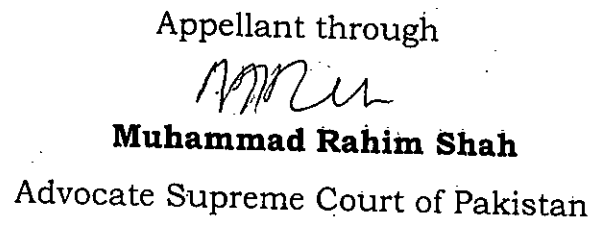 Appellant through
Muhammad Rahim Shah
Advocate Supreme Court of Pakistan